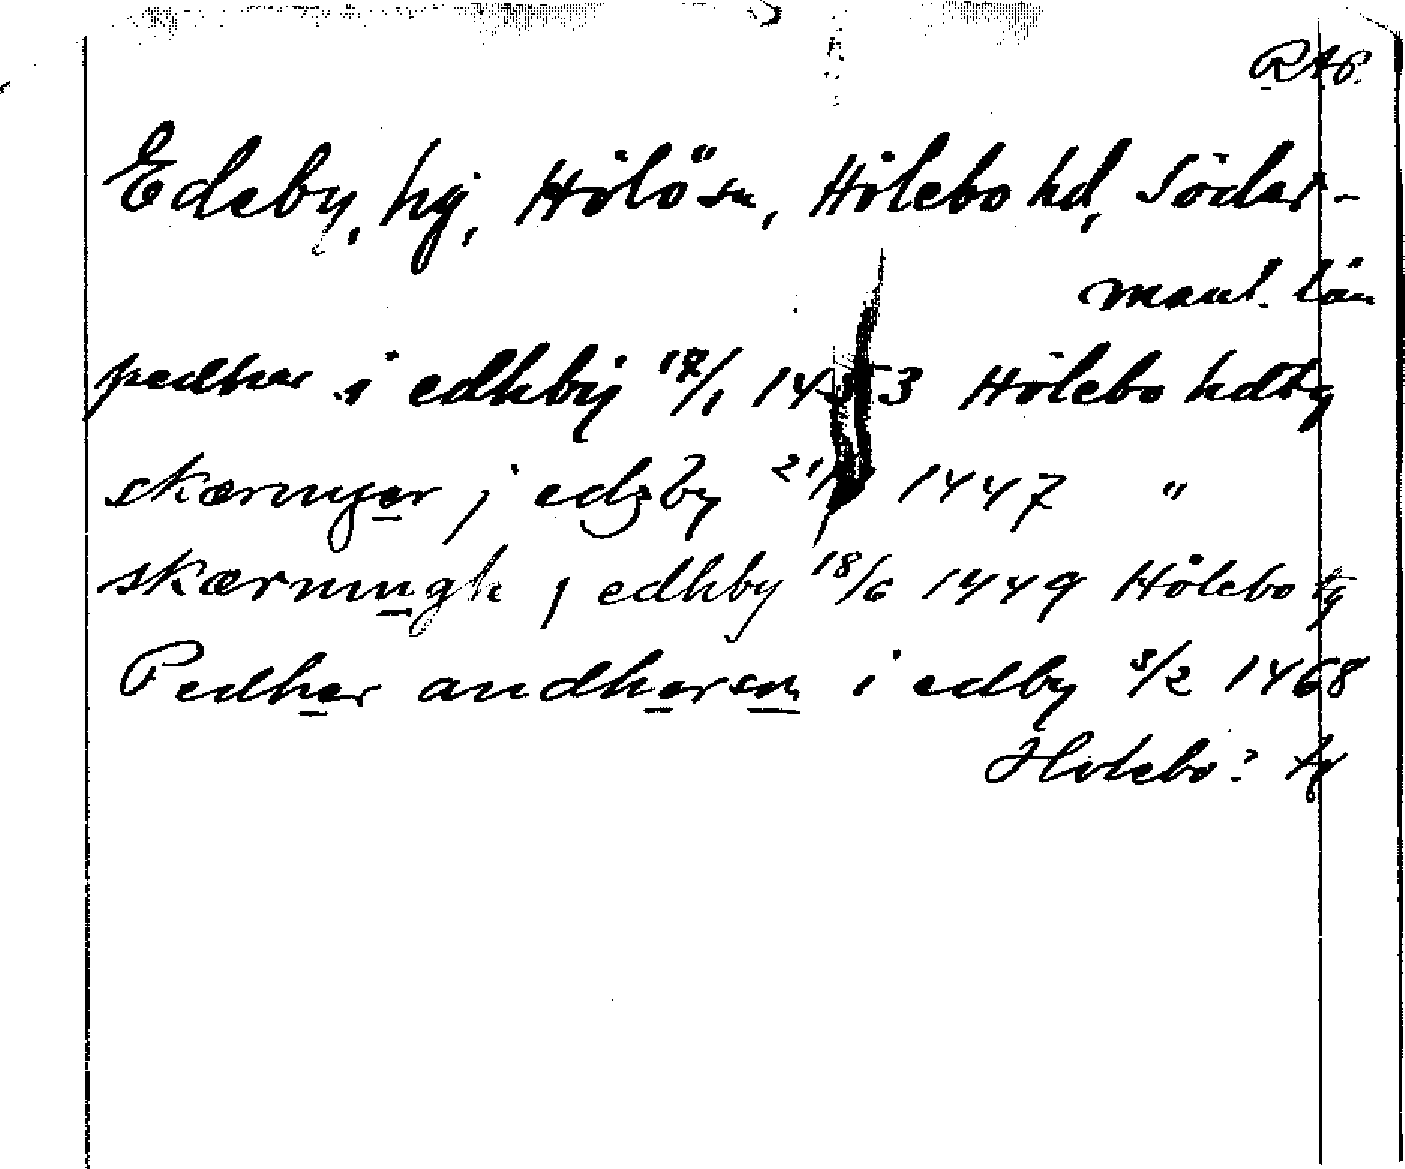 RAP.
Edeby, hg, Hölö sn, Hölebo hd, Söder-
manl. län
pedhar i edhby 17/1 1453 Hölebo hdtg
skærinyer j edzby 1447 "
skærningh j edhby 18/6 1449 Hölebo tg
Pedher andherson i edby 3/2 1468
Holebo? tg